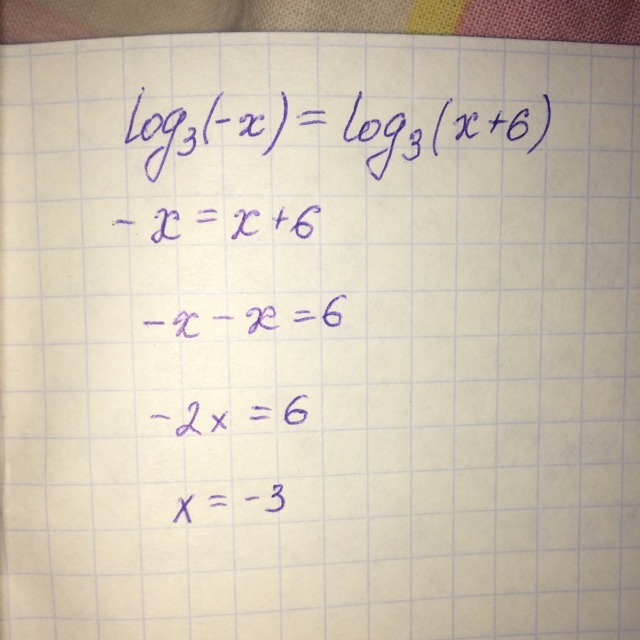 log₃(-x) = log₃(x+6)
-x = x+6
-x - x = 6
-2x = 6
x = -3